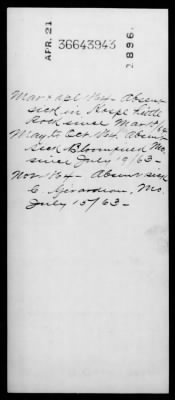 APR. 21
36643943
2896.
Mar & Apl /64 - Absent
sick in Hosp. Little
Rock since Mar /64
May to Oct /64, Absent
sick Bloomfield Mo.
since July 19/63 -
Nov /64 - Absent sick
C. Girardeau, Mo.
July 15/63 -